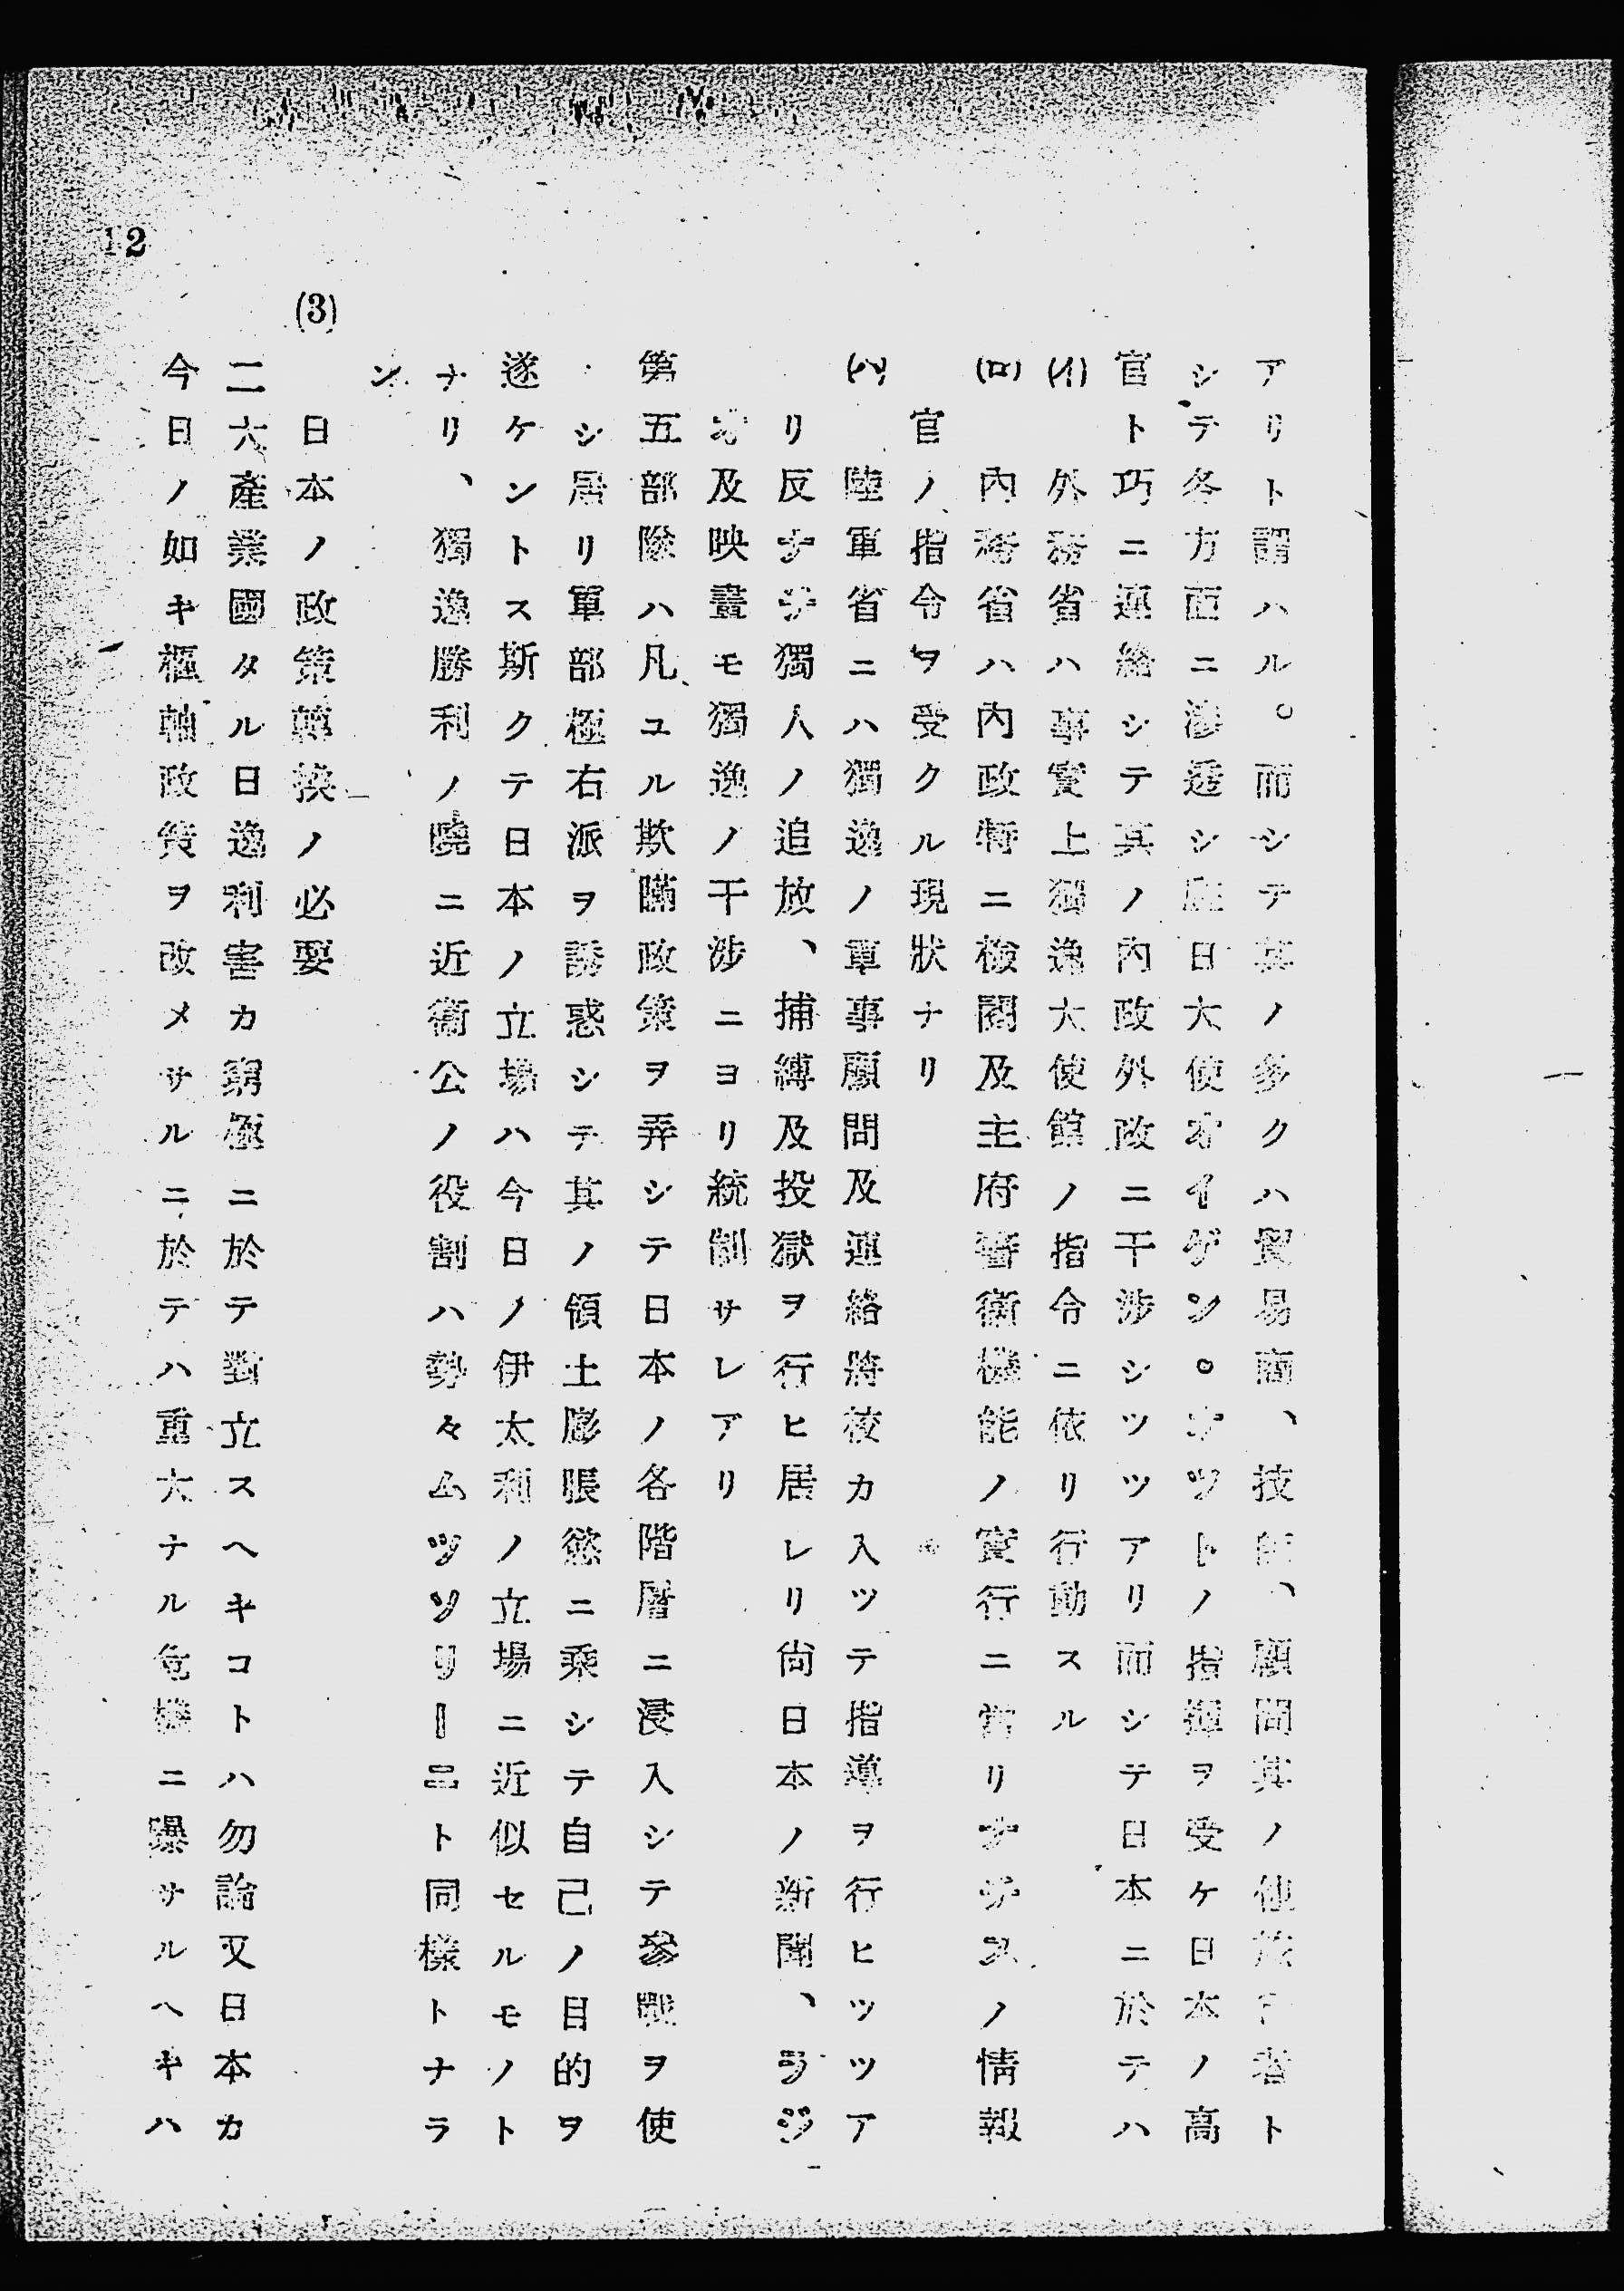 アリト謂ハル。而シテ其ノ多クハ貿易商、技師、顧問其ノ他旅行者ト
シテ各方面ニ滲透シ駐日大使オイゲン。オツトノ指揮ヲ受ケ日本ノ高
官ト巧ニ連絡シテ其ノ內政外政ニ干涉シツツアリ而シテ日本ニ於テハ
(イ) 外務省ハ事實上獨逸大使館ノ指令ニ依リ行動スル
(ロ) 內務省ハ內政特ニ檢閱及主府警衞機能ノ實行ニ當リナチスノ情報
官ノ指令ヲ受クル現狀ナリ
(ハ) 陸軍省ニハ獨逸ノ軍事顧問及連絡將校カ入ツテ指導ヲ行ヒツツア
リ反ナチ獨人ノ追放、捕縛及投獄ヲ行ヒ居レリ尙日本ノ新聞、ラジ
オ及映畫モ獨逸ノ干涉ニヨリ統制サレアリ
第五部隊ハ凡ユル欺瞞政策ヲ弄シテ日本ノ各階層ニ浸入シテ參戰ヲ使
シ居リ軍部極右派ヲ誘惑シテ其ノ領土膨脹慾ニ乘シテ自己ノ目的ヲ
遂ケントス斯クテ日本ノ立場ハ今日ノ伊太利ノ立場ニ近似セルモノト
ナリ、獨逸勝利ノ曉ニ近衞公ノ役割ハ勢々ムツソリーニト同樣トナラ
ン
(3) 日本ノ政策轉換ノ必要
二大產業國タル日逸利害カ窮極ニ於テ對立スヘキコトハ勿論又日本カ
今日ノ如キ樞軸政策ヲ改メサルニ於テハ重大ナル危機ニ曝サルヘキハ
12